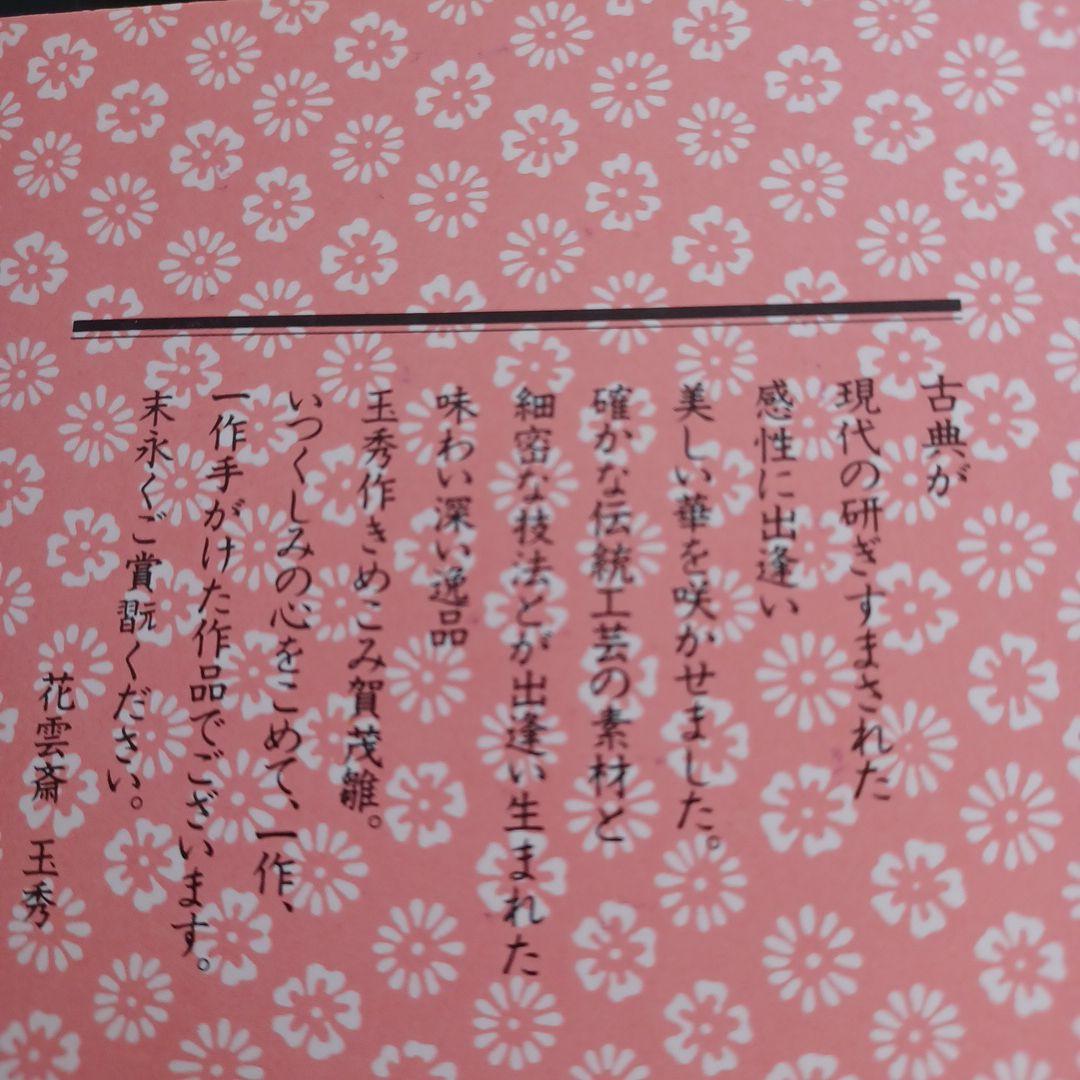 古典が
現代の研ぎすまされた
感性に出逢い
美しい華を咲かせました。
確かな伝統工芸の素材と
細密な技法とが出逢い生まれた
味わい深い逸品
玉秀作きめこみ賀茂雛。
いつくしみの心をこめて、一作、
一作手がけた作品でございます。
末永くご賞翫ください。
花雲斎 玉秀